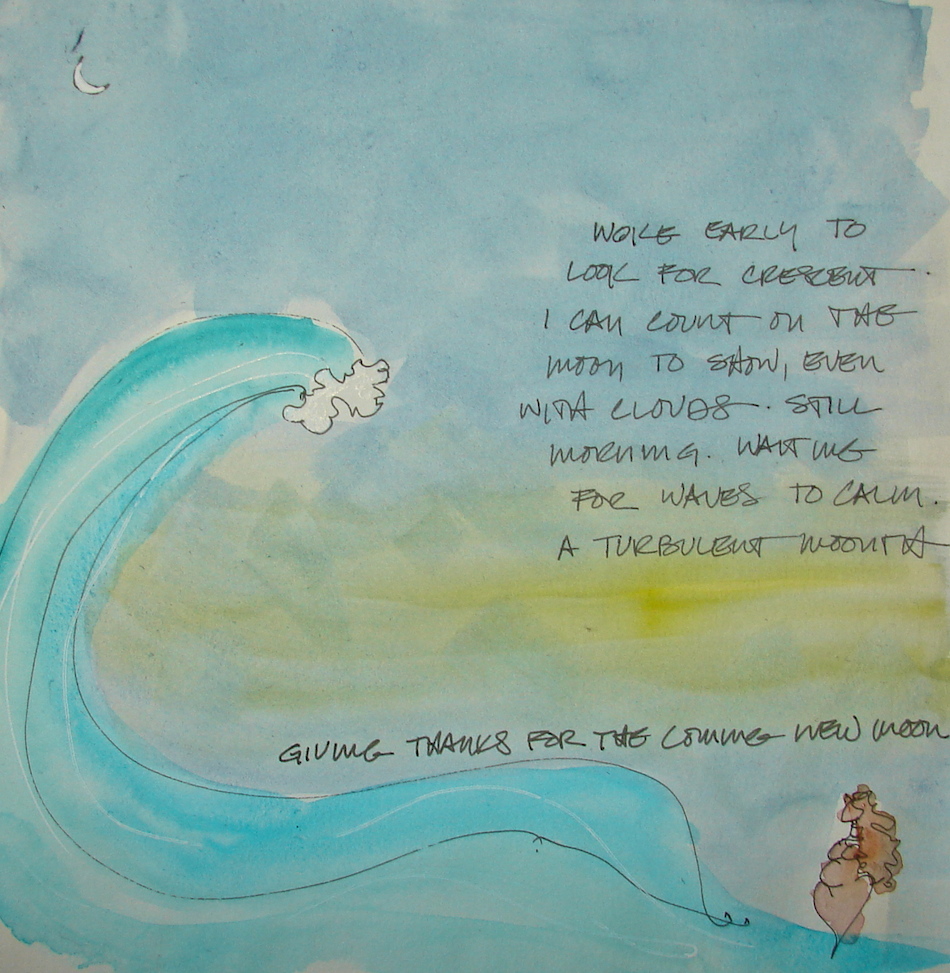 WOKE EARLY TO
LOOK FOR CRESCENT.
I CAN COUNT ON THE
MOON TO SHOW, EVEN
WITH CLOUDS. STILL
MORNING. WAITING
FOR WAVES TO CALM.
A TURBULENT MONTH
GIVING THANKS FOR THE COMING NEW MOON